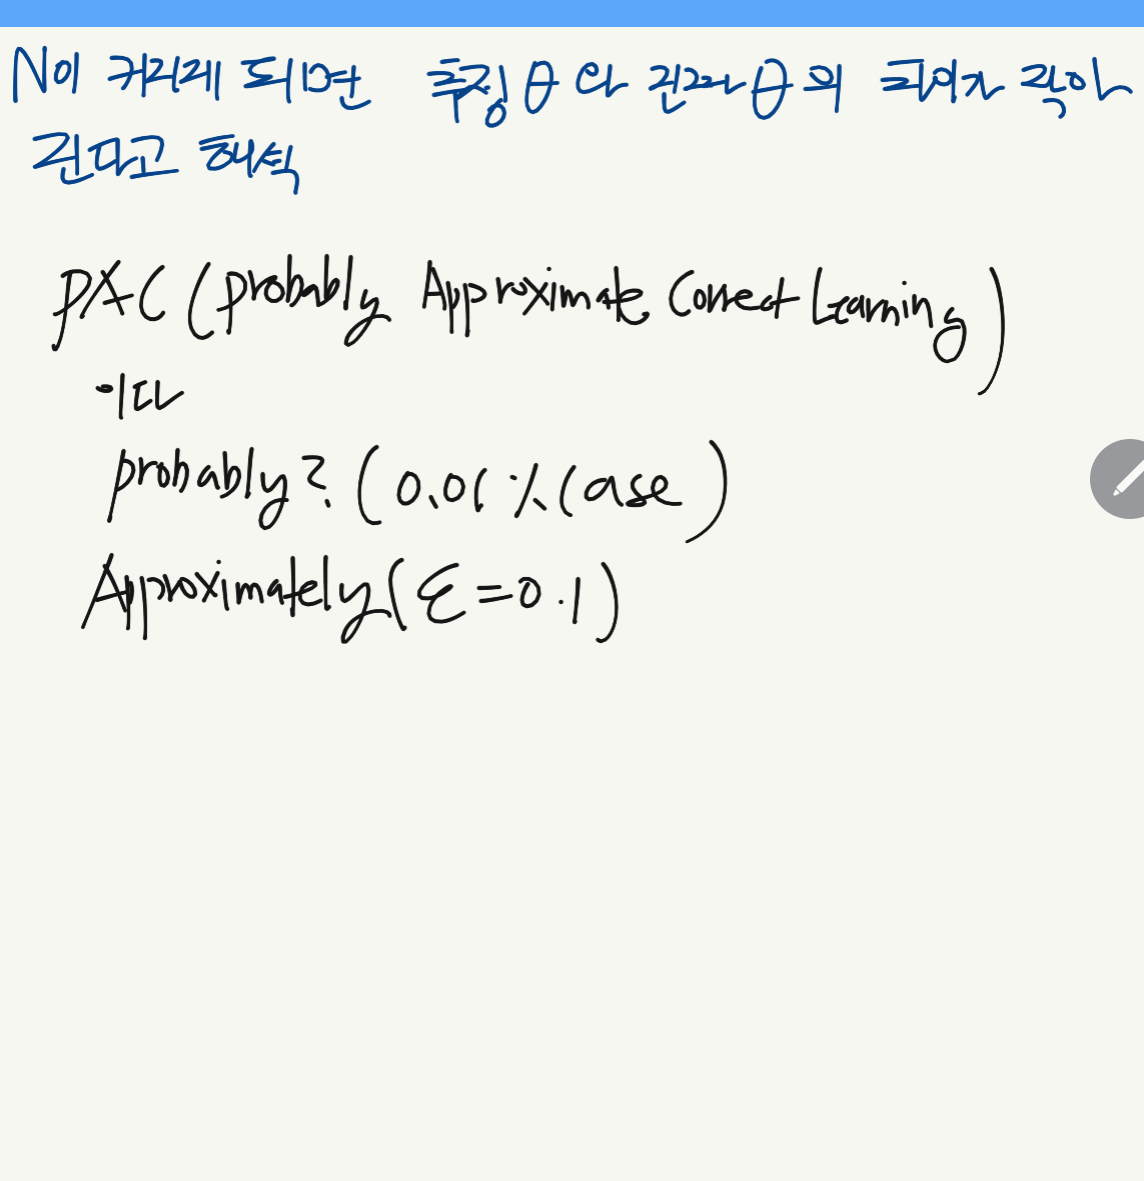 N이 커지게 되면 추정 θ와 진짜 θ의 차이가 작아
진다고 해석
PAC (Probably Approximate Correct Learning)
이다
probably? (0.01 % Case)
Approximately (ε = 0.1)